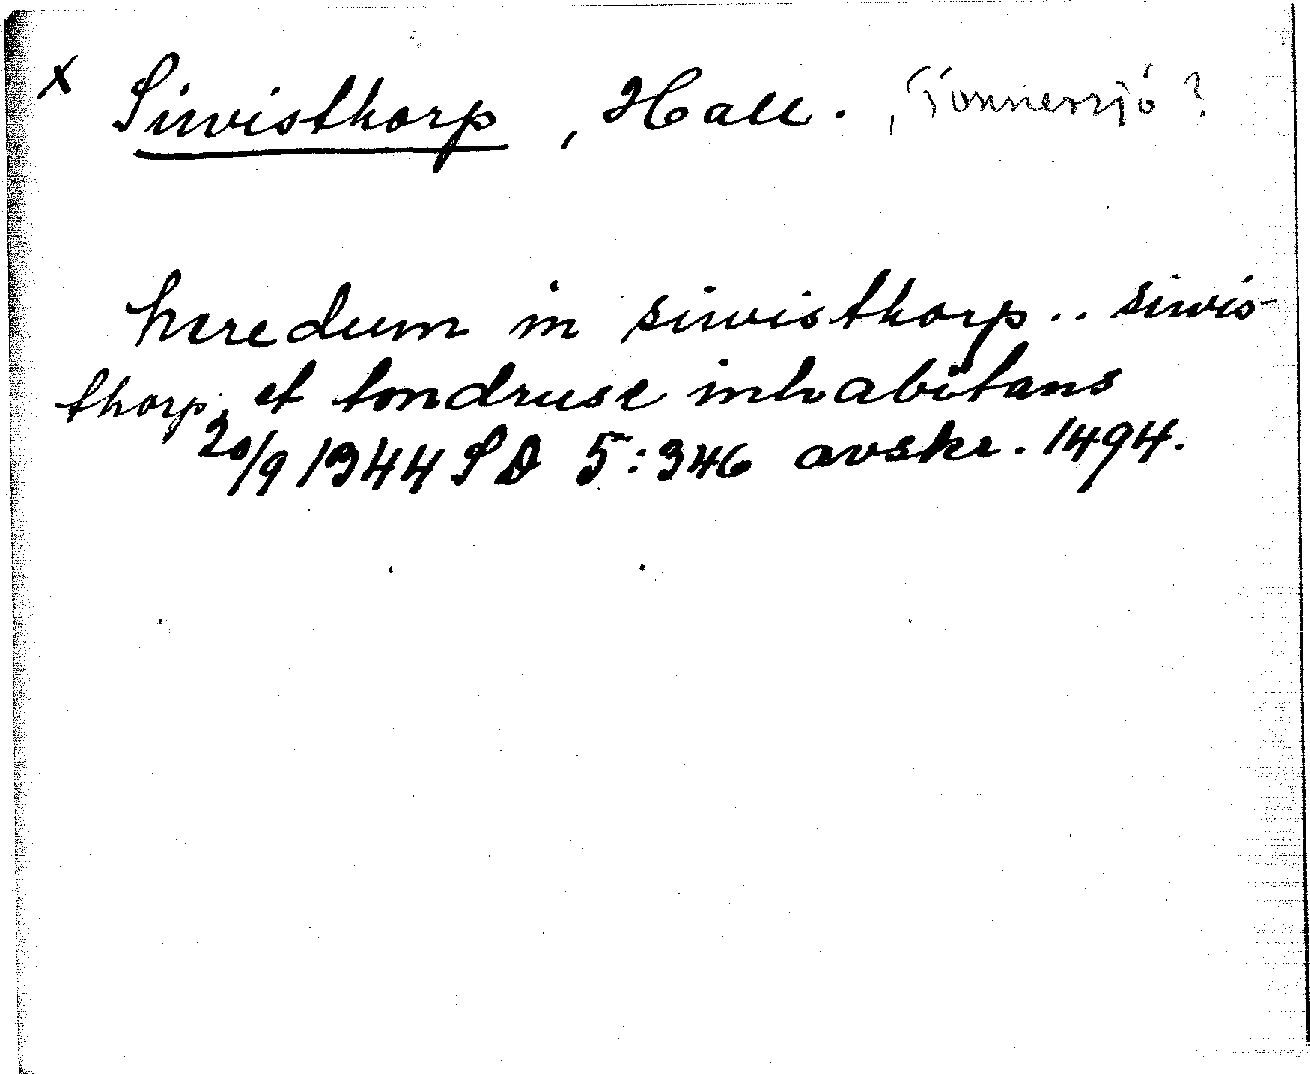 x Siwisthorp, Hall. , Tönnersjö?
heredum in siwisthorp.. siwis-
thorp, et tondruse inhabitans
20/9 1344 SD 5:346 avskr. 1494.